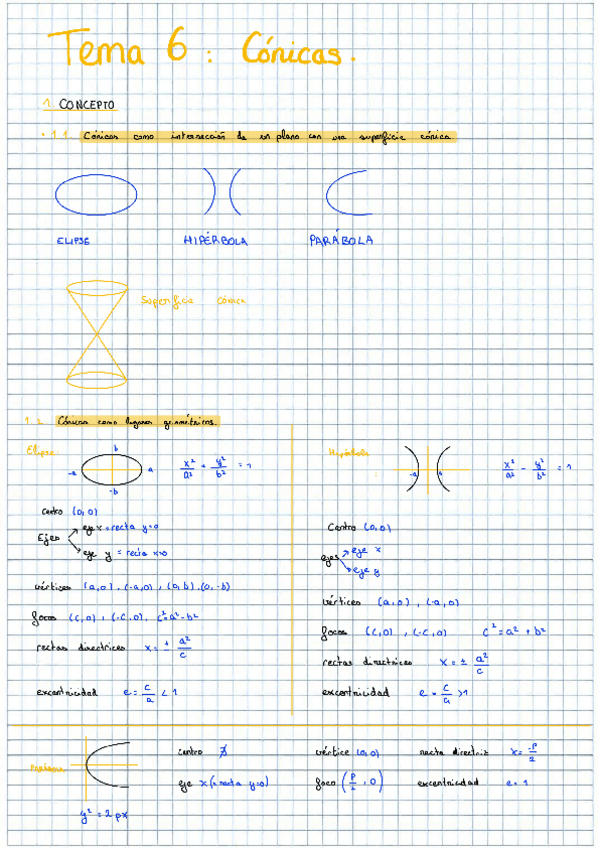 Tema 6 : Cónicas.
1. CONCEPTO
· 1.1. Cónicas como intersección de un plano con una superficie cónica.
ELIPSE
HIPÉRBOLA
PARÁBOLA
Superficie cónica
1.2. Cónicas como lugares geométricos.
Elipse
b
-a
a
-b
x²/a² + y²/b² = 1
centro (0,0)
Ejes
eje x = recta y=0
eje y = recta x=0
vértices (a,0), (-a,0), (0,b), (0,-b)
focos (c,0), (-c,0), c²=a²-b²
rectas directrices x = ± a²/c
excentricidad e = c/a < 1
Hipérbola
-a
a
x²/a² - y²/b² = 1
Centro (0,0)
ejes
eje x
eje y
vértices (a,0), (-a,0)
focos (c,0), (-c,0) c² = a² + b²
rectas directrices x = ± a²/c
excentricidad e = c/a >1
Parábola
y² = 2px
centro ∄
eje x (= recta y=0)
vértice (0,0)
foco (p/2, 0)
recta directriz x = -p/2
excentricidad e = 1